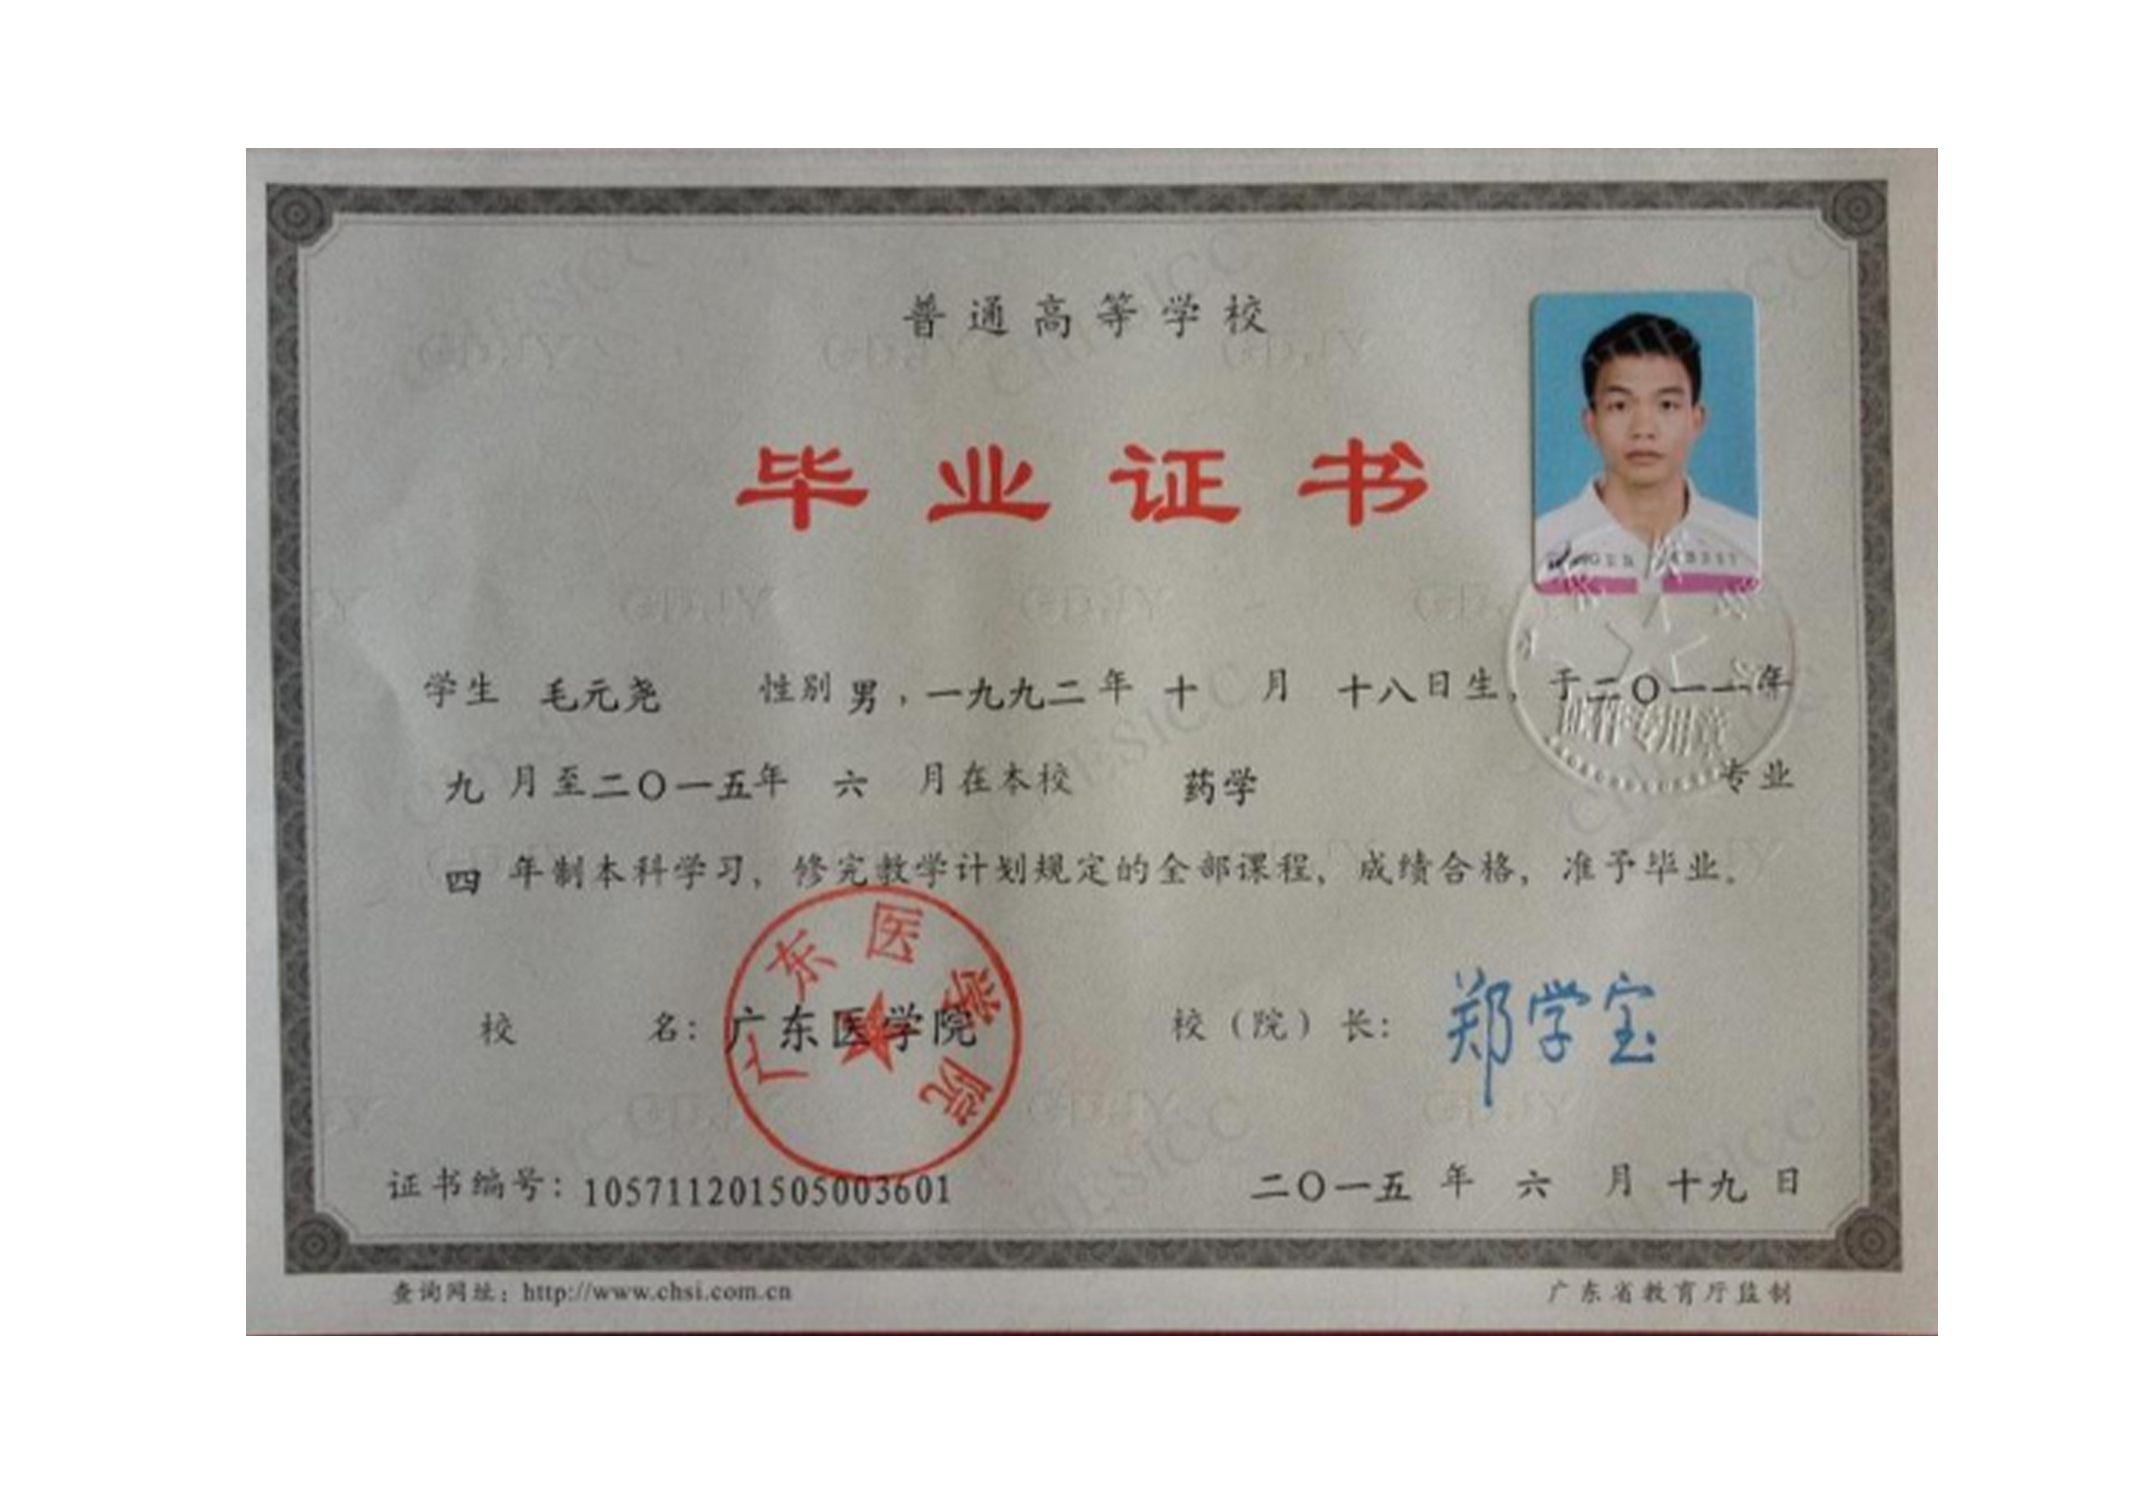 普通高等学校
毕业证书
学生 毛元尧 性别 男，一九九二 年 十 月 十八日生，于二〇一一年
九 月至二〇一五年 六 月在本校 药学 专业
四 年制本科学习，修完教学计划规定的全部课程，成绩合格，准予毕业。
校 名：广东医学院 校（院）长：郑学宝
广东医学院
证书编号：105711201505003601 二〇一五 年 六 月 十九 日
查询网址：http://www.chsi.com.cn 广东省教育厅监制